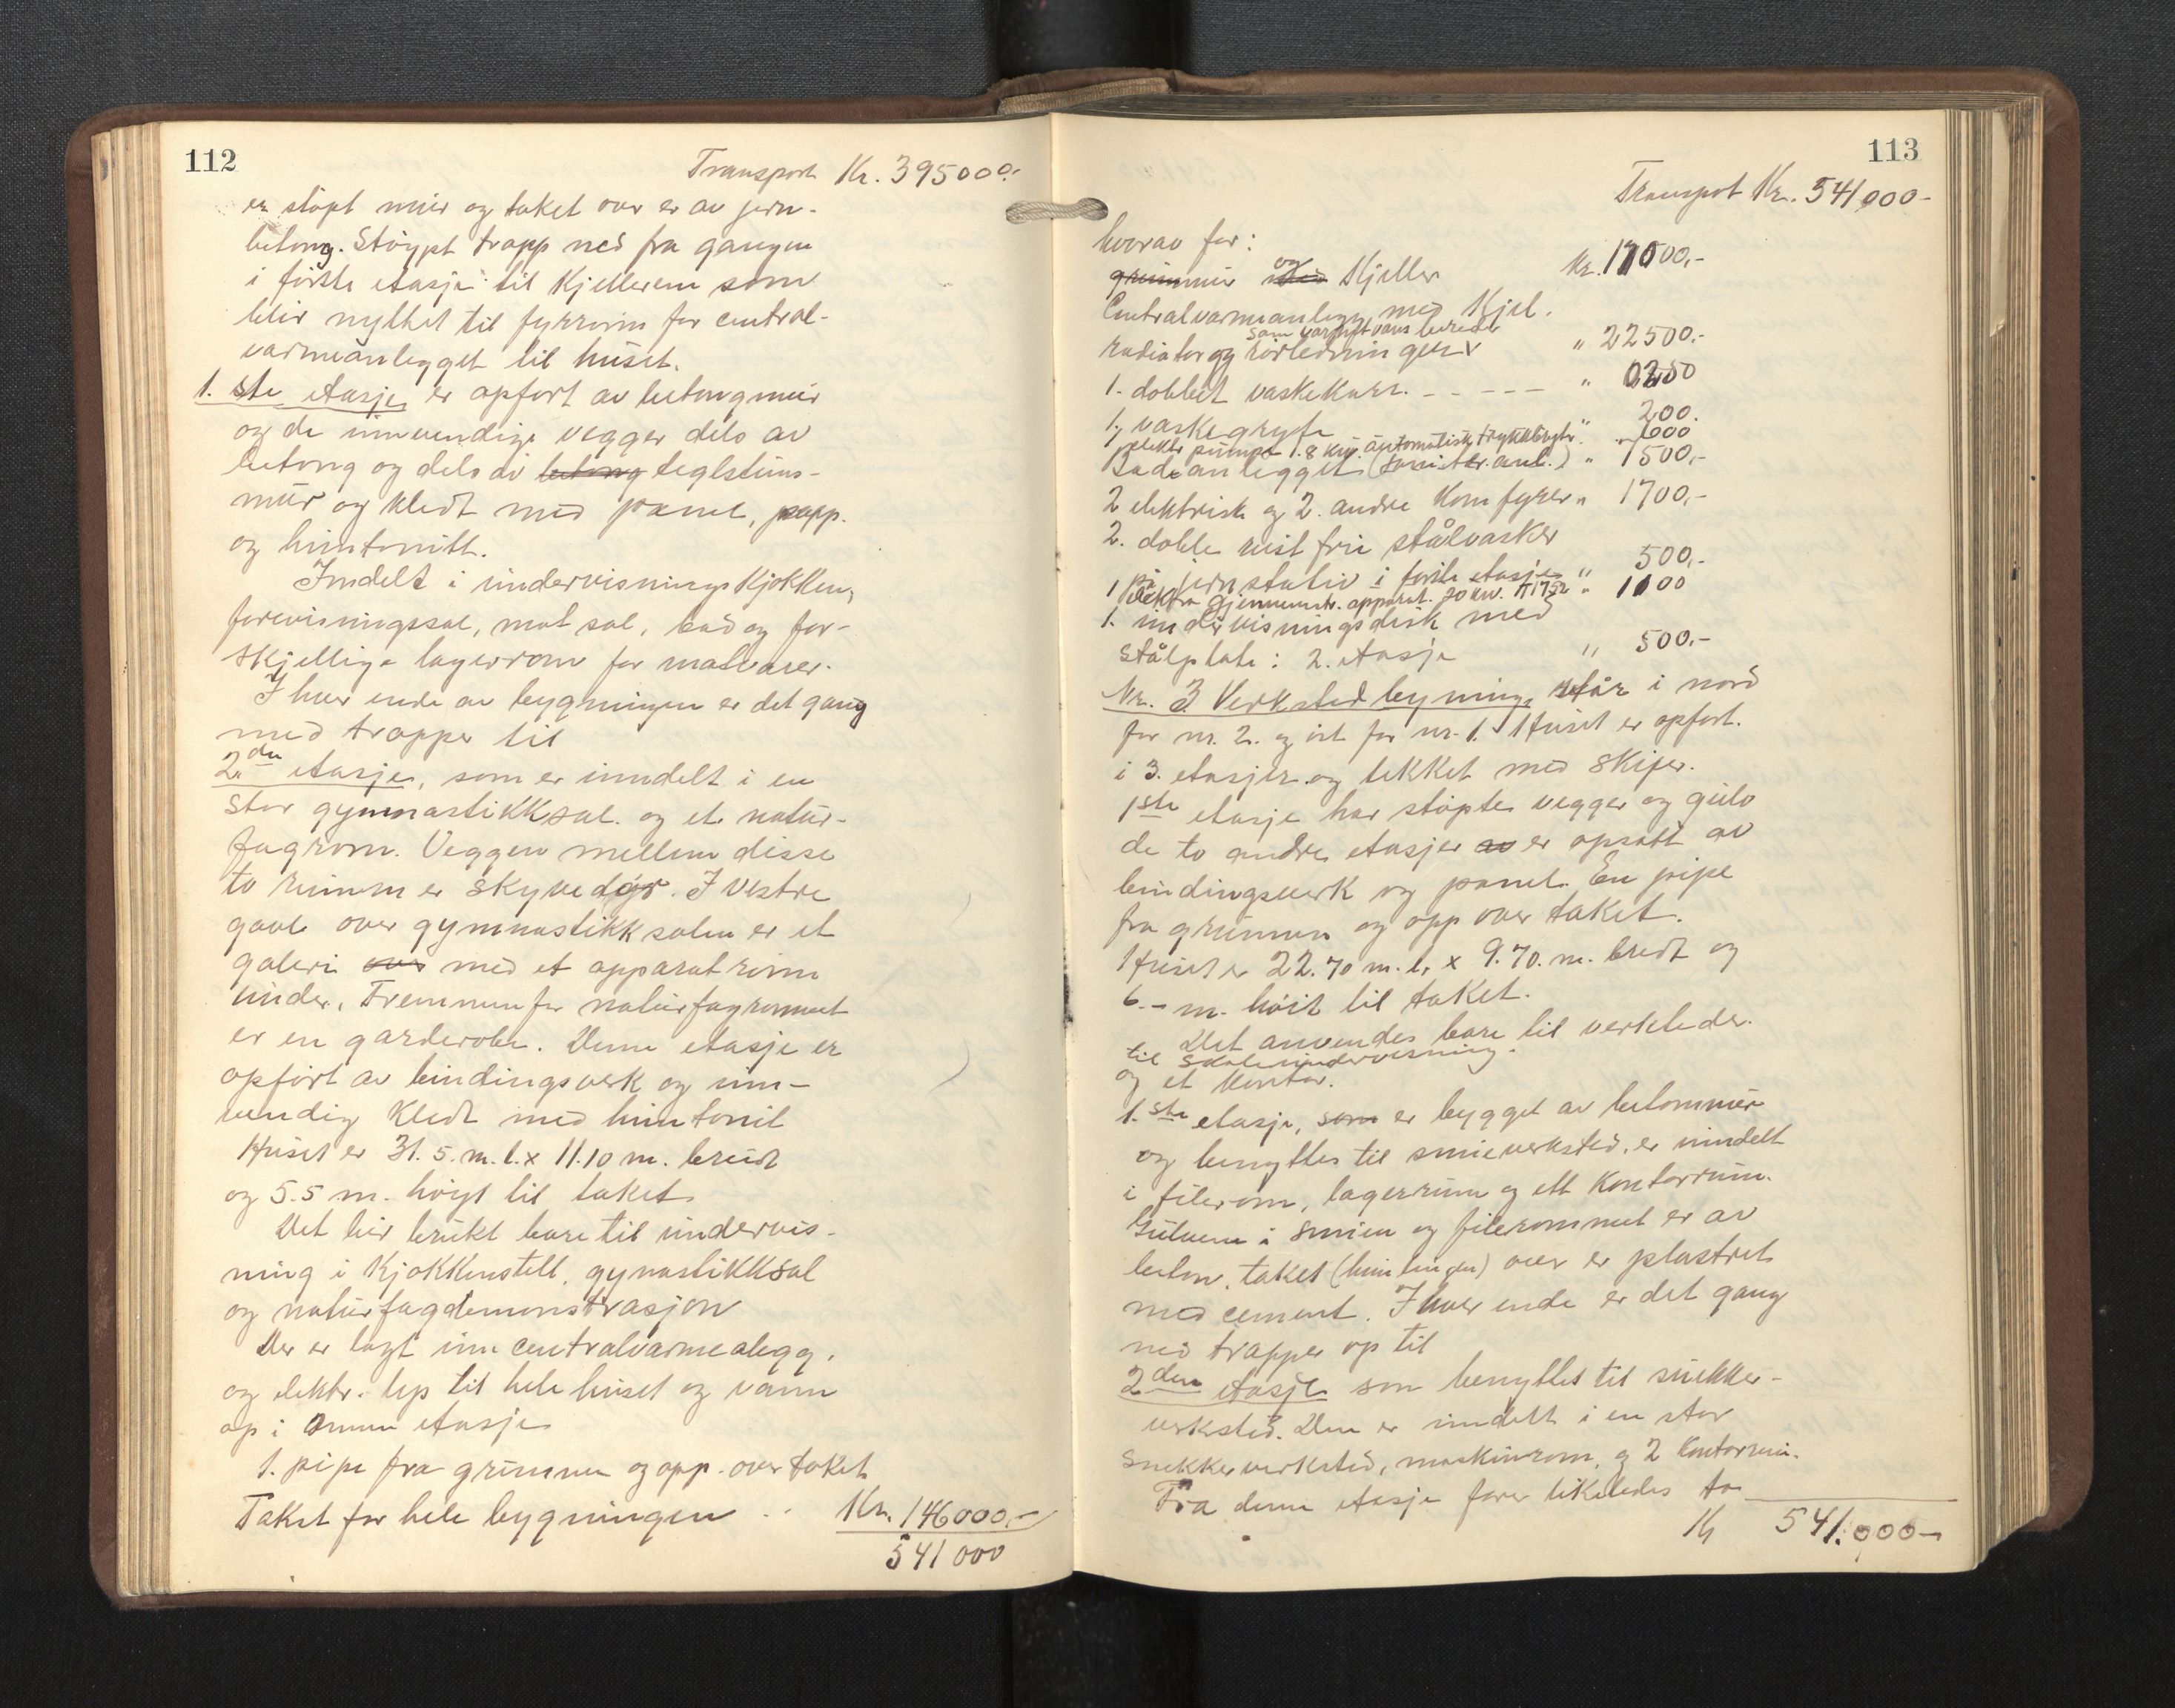 112
Transport Kr. 395000.-
er støpt mur og taket over er av jern-
betong. Støypt trapp ned fra gangen
i förste etasje til Kjelleren som
blir nyttet til fyrrom for central-
varmeanlegget til huset.
1. ste etasje er opfort av betongmur
og de innvendige vegger dels av
betong og dels av betong teglsteins-
mur og kledt med panel, papp.
og huntonitt.
Inndelt i undervisningskjøkken,
forevisningssal, matsal, bad og for-
skjellige lagerrom for matvarer.
I hver ende av bygningen er det gang
med trapper til
2. den etasje, som er inndelt i en
stor gymnastikksal. og et natur-
fagrom. Veggen mellem disse
to rumm er skyvedør. I vestre
gavl over gymnastikksalen er et
galeri over med et apparatrom
under. Fremmenfor naturfagrommet
er en garderobe. Denne etasje er
opført av bindingsverk og inn-
vendig kledt med huntonit
Huset er 31.5. m. l. x 11.10 m. breidt
og 5.5 m. høyt til taket
Det blir brukt bare til undervis-
ning i Kjøkkenstell, gynastikksal
og naturfagdemonstrasjon
Der er lagt inn centralvarmealegg.
og elektr. lys til hele huset og vann
op i annen etasje
1. pipe fra grunnen og opp. over taket
Takst for hele bygningen . . Kr. 146000.-
541 000
113
Transport Kr. 541,000-
hvorav for:
grunnmur med og Kjeller Kr. 11000.-
Centralvarmeanlegg med Kjel.
som varmtvans bereder
radiator og rörledninger " 22500.-
1. dobbelt vaskekarr. - - - - - "
1. vaskegryte " 200.
1 elektr pumpe 1.8 kw. automatisk trykkbryter " 600
Badeanlegget (sanitær. anl.) " 1500.-
2 elektrisk og 2. andre Komfyrer " 1700.-
2. doble rust frie stålvasker
på jernstativ i förste etasje " 500.-
1 elektr. gjennemstr. apparat. 20 kw. " 1100
1. undervisningsdisk med
Stålplate: 2. etasje " 500.-
Nr. 3 Verkstedbyning, står i nord
for nr. 2. og öst for nr. 1. Huset er opfort.
i 3. etasjer og tekket med skifer.
1ste etasje har støpte vegger og gulv
de to andre etasjer av er opsatt av
bindingsverk og panel. En pipe
fra grunnen og opp over taket.
Huset er 22.70 m. l. x 9.70. m. bredt og
6.- m. höit til taket.
Det anvendes bare til verksteder.
til skoleundervisning.
og et kontor.
1. ste etasje, som er bygget av betonmur
og benyttes til smieverksted, er inndelt
i filerom, lagerrum og ett Kontorrum.
Gulvene i smien og filerommet er av
beton, taket (himlingen) over er plastret
med cement. I hver ende er det gang
med trapper op til
2den etasje som benyttes til snekker-
verksted. Den er inndelt i en stor
snekkerverksted, maskinrom, og 2 kontorrum.
Fra denne etasje fører likeledes to
Kr 541.000-